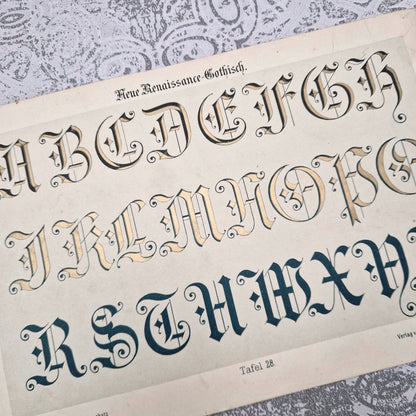 Neue Renaissance-Gothisch.
A B C D E F G H
I K L M N O P Q
R S T U W X Y
Tafel 28.
Verlag v